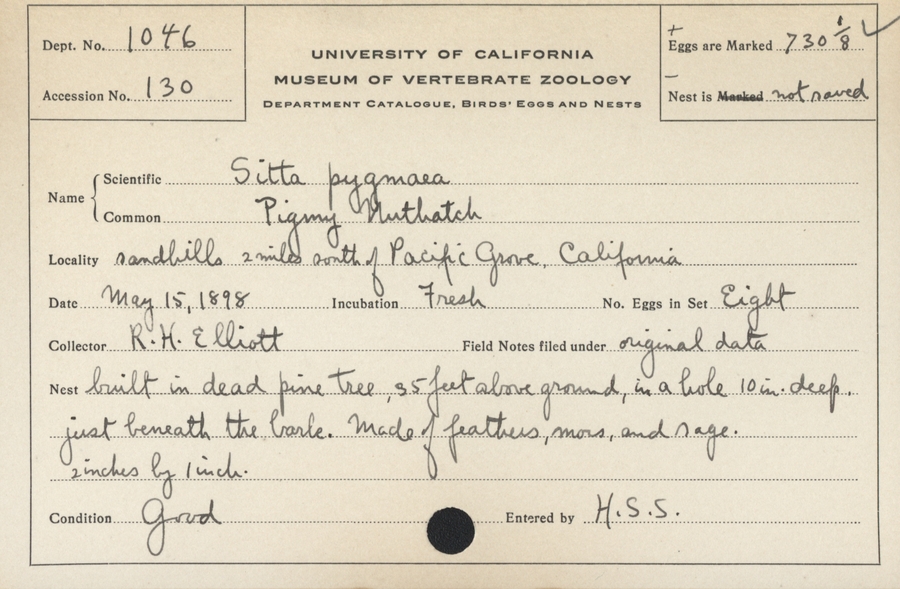 Dept. No. 1046
Accession No. 130
UNIVERSITY OF CALIFORNIA
MUSEUM OF VERTEBRATE ZOOLOGY
DEPARTMENT CATALOGUE, BIRDS' EGGS AND NESTS
+
Eggs are Marked 730 1/8 ✓
–
Nest is Marked not saved
Name
Scientific Sitta pygmaea
Common Pigmy Nuthatch
Locality sandhills 2 miles south of Pacific Grove, California
Date May 15, 1898 Incubation Fresh No. Eggs in Set Eight
Collector R.H. Elliott Field Notes filed under original data
Nest built in dead pine tree, 35 feet above ground, in a hole 10 in. deep,
just beneath the bark. Made of feathers, moss, and sage.
2 inches by 1 inch.
Condition Good Entered by H.S.S.